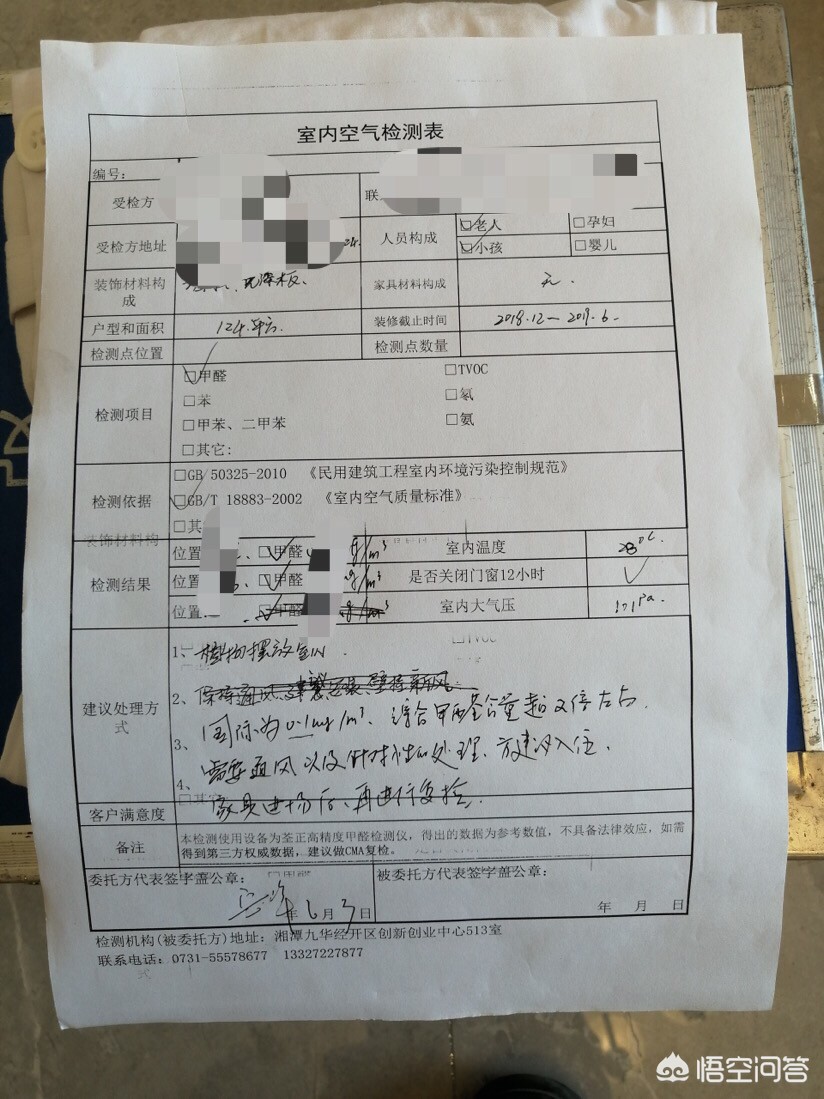 室内空气检测表
编号:
受检方
联
受检方地址
人员构成 □老人 □孕妇
□小孩 □婴儿
装饰材料构成 板、
家具材料构成 无.
户型和面积 124.平方. 装修截止时间 2018.12—2019.6.
检测点位置 检测点数量
检测项目
□甲醛 □TVOC
□苯 □氡
□甲苯、二甲苯 □氨
□其它:
检测依据
□GB/50325-2010 《民用建筑工程室内环境污染控制规范》
□GB/T 18883-2002 《室内空气质量标准》
□其
装饰材料构
检测结果
位置 、□甲醛 g/m³ 室内温度 28°C.
位置 、□甲醛 mg/m³ 是否关闭门窗12小时 ✓
位置 □甲醛 g/m³ 室内大气压 Pa.
建议处理方式
1、植物摆放室内. □TVOC
2、
国际为0.1mg/m³、综合甲醛含量超2倍左右.
3、需要通风以及针对性的处理、方建议入住.
4、□其它
家具进场后、再进行复检.
客户满意度
备注 本检测使用设备为荃正高精度甲醛检测仪，得出的数据为参考数值，不具备法律效应，如需
得到第三方权威数据，建议做CMA复检。
委托方代表签字盖公章: □甲醛 被委托方代表签字盖公章:
年6月3日 年 月 日
检测机构(被委托方)地址: 湘潭九华经开区创新创业中心513室
联系电话: 0731-55578677 13327227877
悟空问答